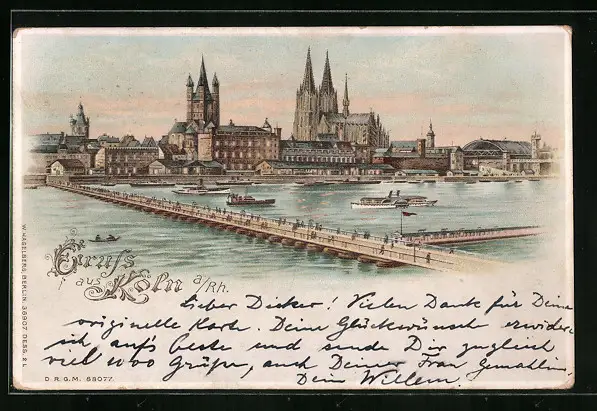 Gruss
aus Köln a/Rh.
Lieber Dicker! Vielen Dank für Deine
originelle Karte. Deine Glückwünsche erwidere
ich auf's beste und sende Dir zugleich
viel 1000 Grüße, auch Deiner Frau Gemahlin,
Dein Willem.
W. HAGELBERG, BERLIN. 36907 DESS. 2 L.
D. R. G. M. 88077.